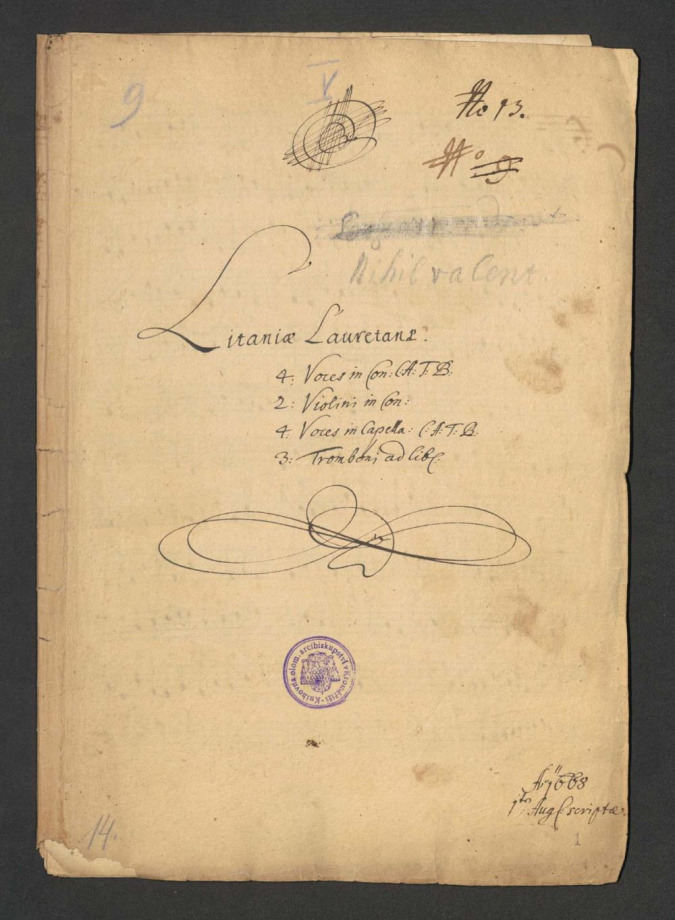 9
V
No 13.
No 9
Nihil valent
Litaniæ Lauretanæ.
4: Voces in Con: C: A: T: B:
2: Violini in Con:
4: Voces in Capella: C: A: T: B.
3: Tromboni ad lib:
Knihovna olom. arcibiskupství v Kroměříži
Aº 1668
1ma Aug: scriptæ.
14.
1